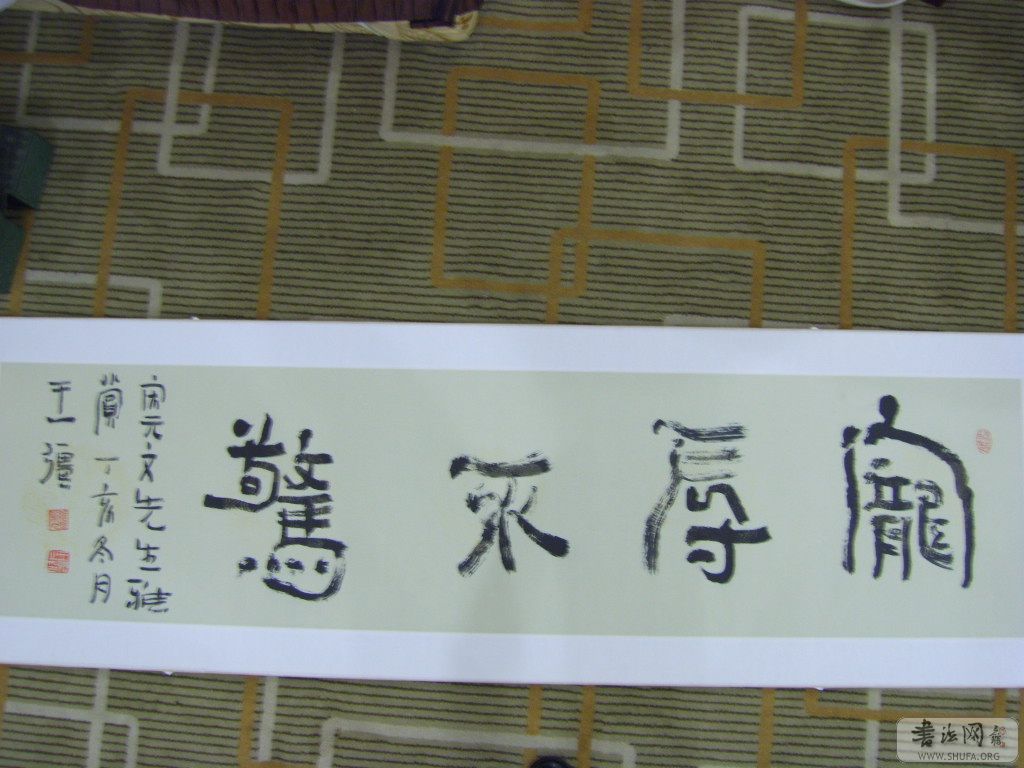 寵辱不驚
宋元文先生雅
賞丁亥冬月
于一彊
書法网
WWW.SHUFA.ORG